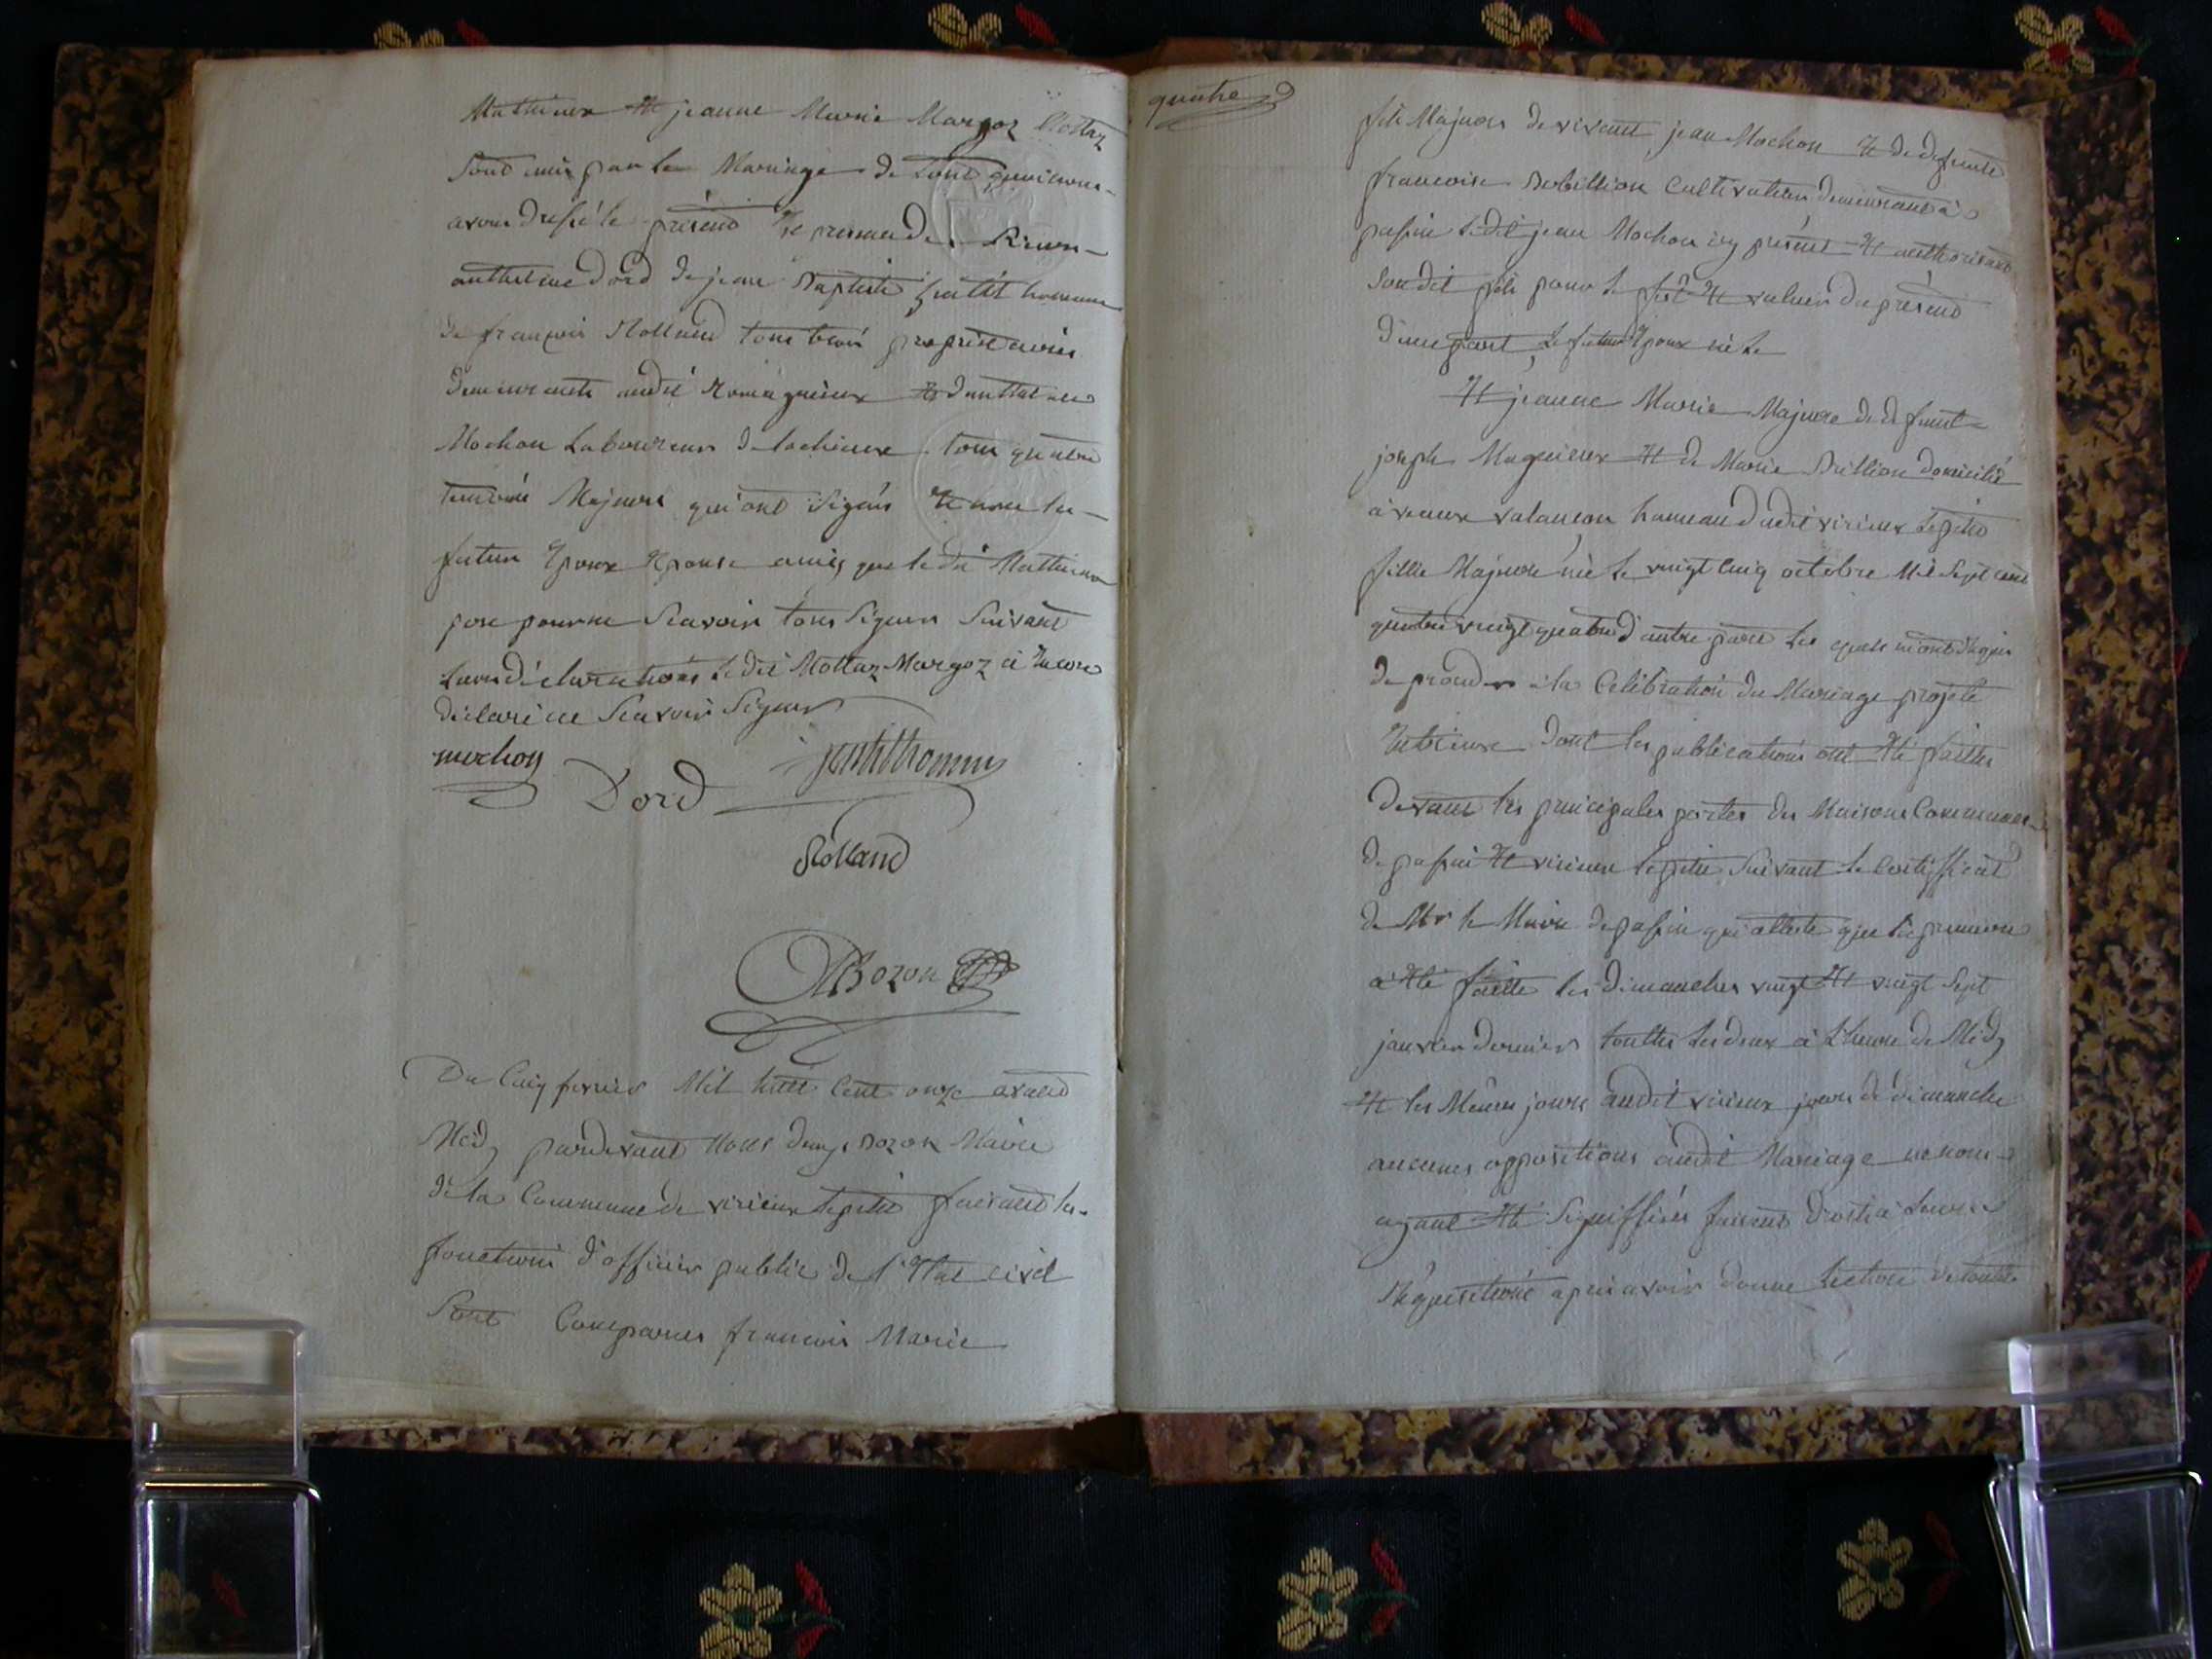 Mathieux Et jeanne Marie Margoz Mottaz
Sont unis par le Mariage de tout quoi nous
avons dressé le présend En presence de Sieurs
anthelme Dord de jean Baptiste gentil homme
de françois Rolland tous trois propriétaires
demeurants audit Romagnieux Et d'anthelme
Mochon Laboureur de tous quatre
temoins Majeurs qui ont Signés Et non les
futur Epoux Epouse ainsi que le dit Mathieux
pere pour ne Scavoir tous Signer Suivant
Leurs déclarations Le dit Mottaz Margoz à Encore
déclaré ne Scavoir Signer
mochon
Dord
gentilhomme
Rolland
Bozon
Du Cinq fevrier Mil huit Cent onze avand
Midy pardevant Nous Bozon Maire
de la Commune de virieux le petit faisand les
fonctions d'officier public de l'Etat civil
Sont Comparus francois Marie
quatre
fils Majeur de vivant jean Mochon Et de defunte
francoise Cultivateur demeurant à
passin Ledit jean Mochon icy présent Et authorisand
Son dit fils pour le fait Et valoir du présend
d'une part, Le futur Epoux né le
Et jeanne Marie Majeure de defunt
joseph Maguieux Et de Marie Billion domicilié
à vaux valancon hameau dudit virieux le petit
fille Majeure née le vingt Cinq octobre Mil Sept cent
quatre vingt quatre d'autre part Les quels m'ont Requis
de proceder à la Celebration du Mariage projeté
Entr'eux dont les publications ont Eté faittes
Devant les principales portes des Maisons Communes
de passin Et virieux le petit Suivant le Certifficat
de Mr le Maire de passin qui atteste que la premiere
à Eté faitte les dimanches vingt Et vingt Sept
janvier dernier touttes les deux à L'heure de Midy
Et les Mêmes jours audit virieux jours de dimanche
aucunes oppositions audit Mariage ne nous
ayant Eté Signiffiées faisant droit à Leurs
Réquisitions après avoir donné lecture de touttes